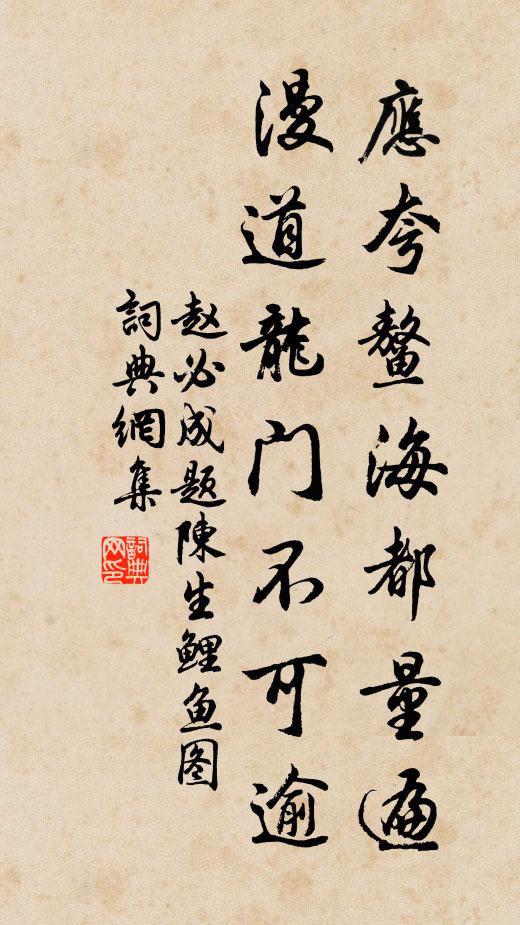 應夸鰲海都量遍
漫道龍门不可逾
赵必成题陳生鲤鱼图
詞典網集
詞典
网印